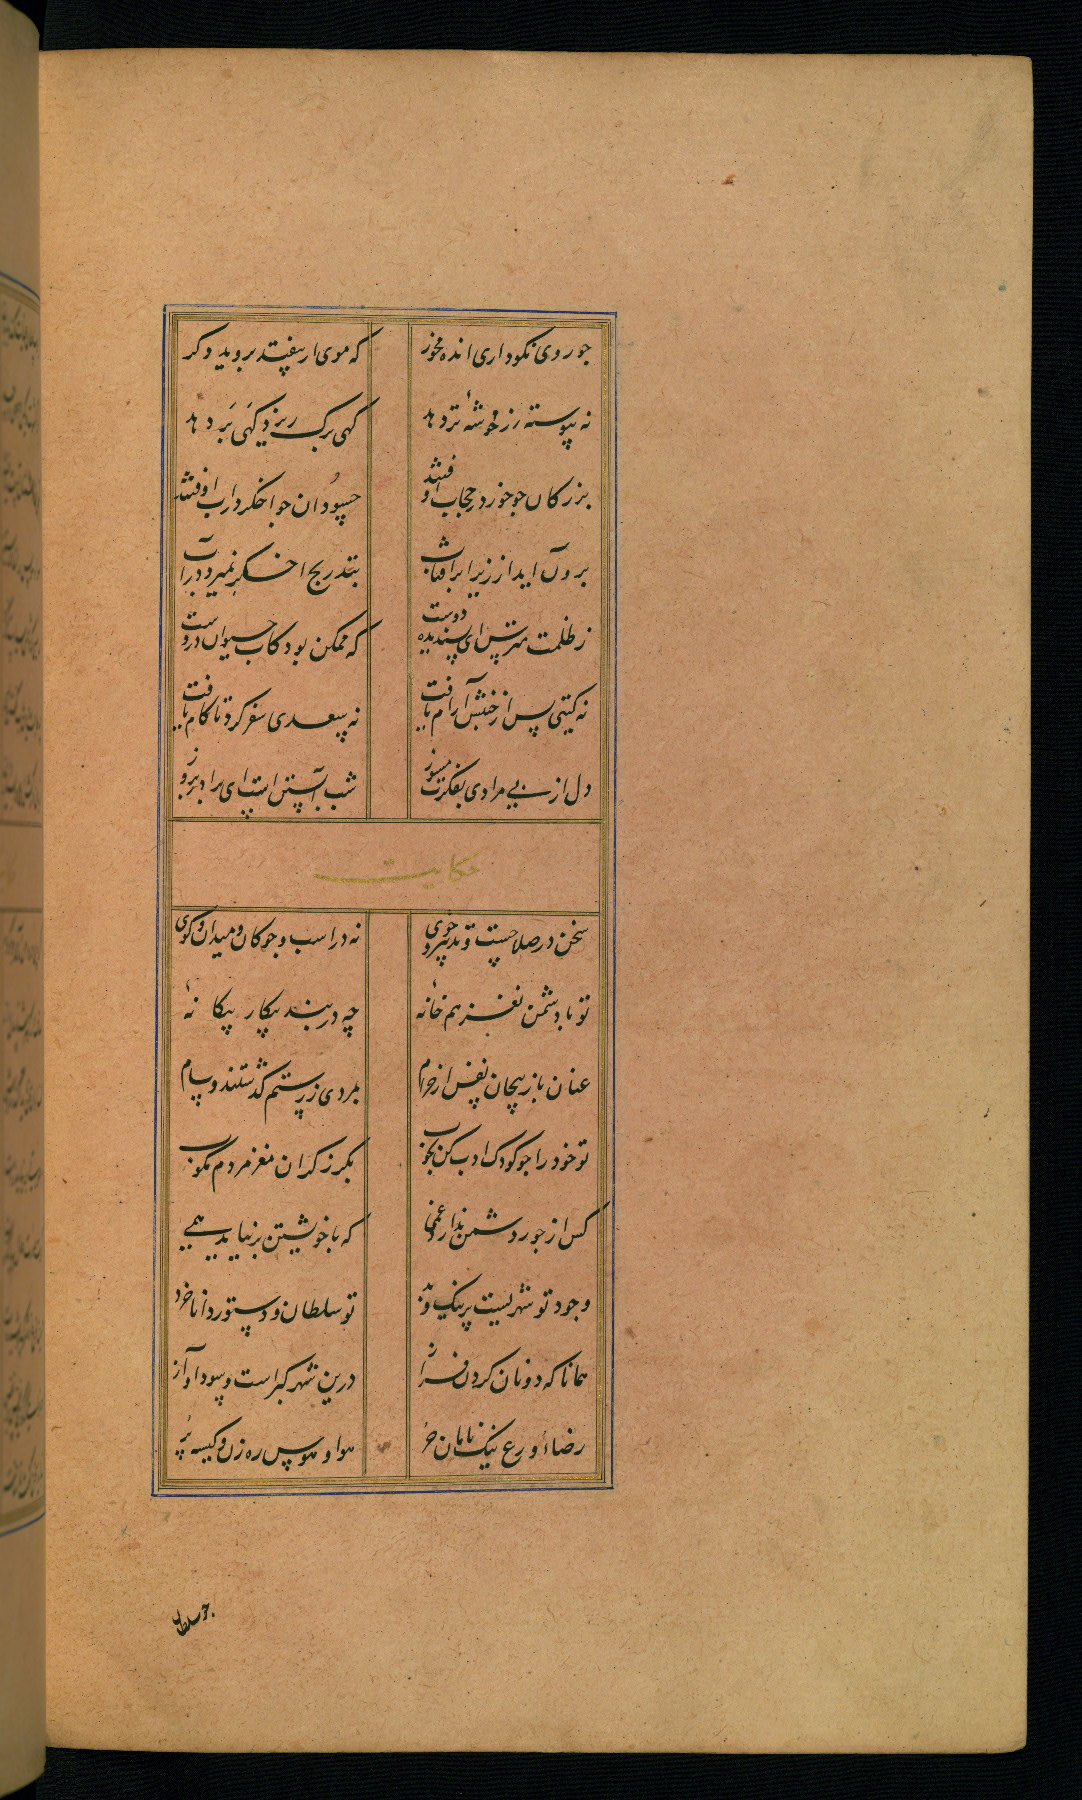 چو روی نکو داری انده مخور که موی ار بیفتد بروید دگر
نه پیوسته رز خوشهٔ تر دهد گهی برگ ریزد گهی بر دهد
بزرگان چو خور در حجاب اوفتند حسودان چو اخگر در آب اوفتند
برون آید از زیر ابر آفتاب بتدریج اخگر بمیرد در آب
ز ظلمت مترس ای پسندیده دوست که ممکن بود کاب حیوان دروست
نه گیتی پس از جنبش آرام یافت نه سعدی سفر کرد تا کام یافت
دل از بی مرادی بفکرت مسوز شب آبستن است ای برادر بروز
حکایت
سخن در صلاحست و تدبیر و خوی نه در اسب و چوگان و میدان و گوی
تو با دشمن نفس همخانهٔ چه در بند پیکار بیگانهٔ
عنان باز پیچان نفس از حرام بمردی ز رستم گذشتند و سام
تو خود را چو کودک ادب کن بچوب بگرز گران مغز مردم مکوب
کس از چون تو دشمن ندارد غمی که با خویشتن بر نیاید همی
وجود تو شهریست پر نیک و بد تو سلطان و دستور دانا خرد
همانا که دونان گردن فراز درین شهر کبراست و سودا و آز
رضا و ورع نیک نامان حر هوا و هوس ره زن و کیسه بر
چو سلطان